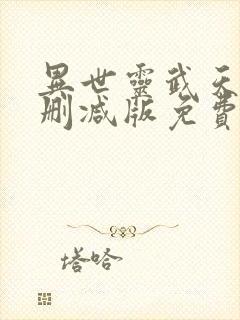 異世靈武天
刪減版免費
塔哈